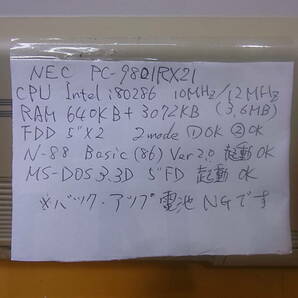 NEC PC-9801RX21
CPU Intel i80286 10MHz/12MHz
RAM 640KB+3072KB (3.6MB)
FDD 5"X2 2mode ①OK ②OK
N-88 Basic(86) Ver2.0 起動OK
MS-DOS 3.3D 5"FD 起動OK
※バック・アップ電池NGです